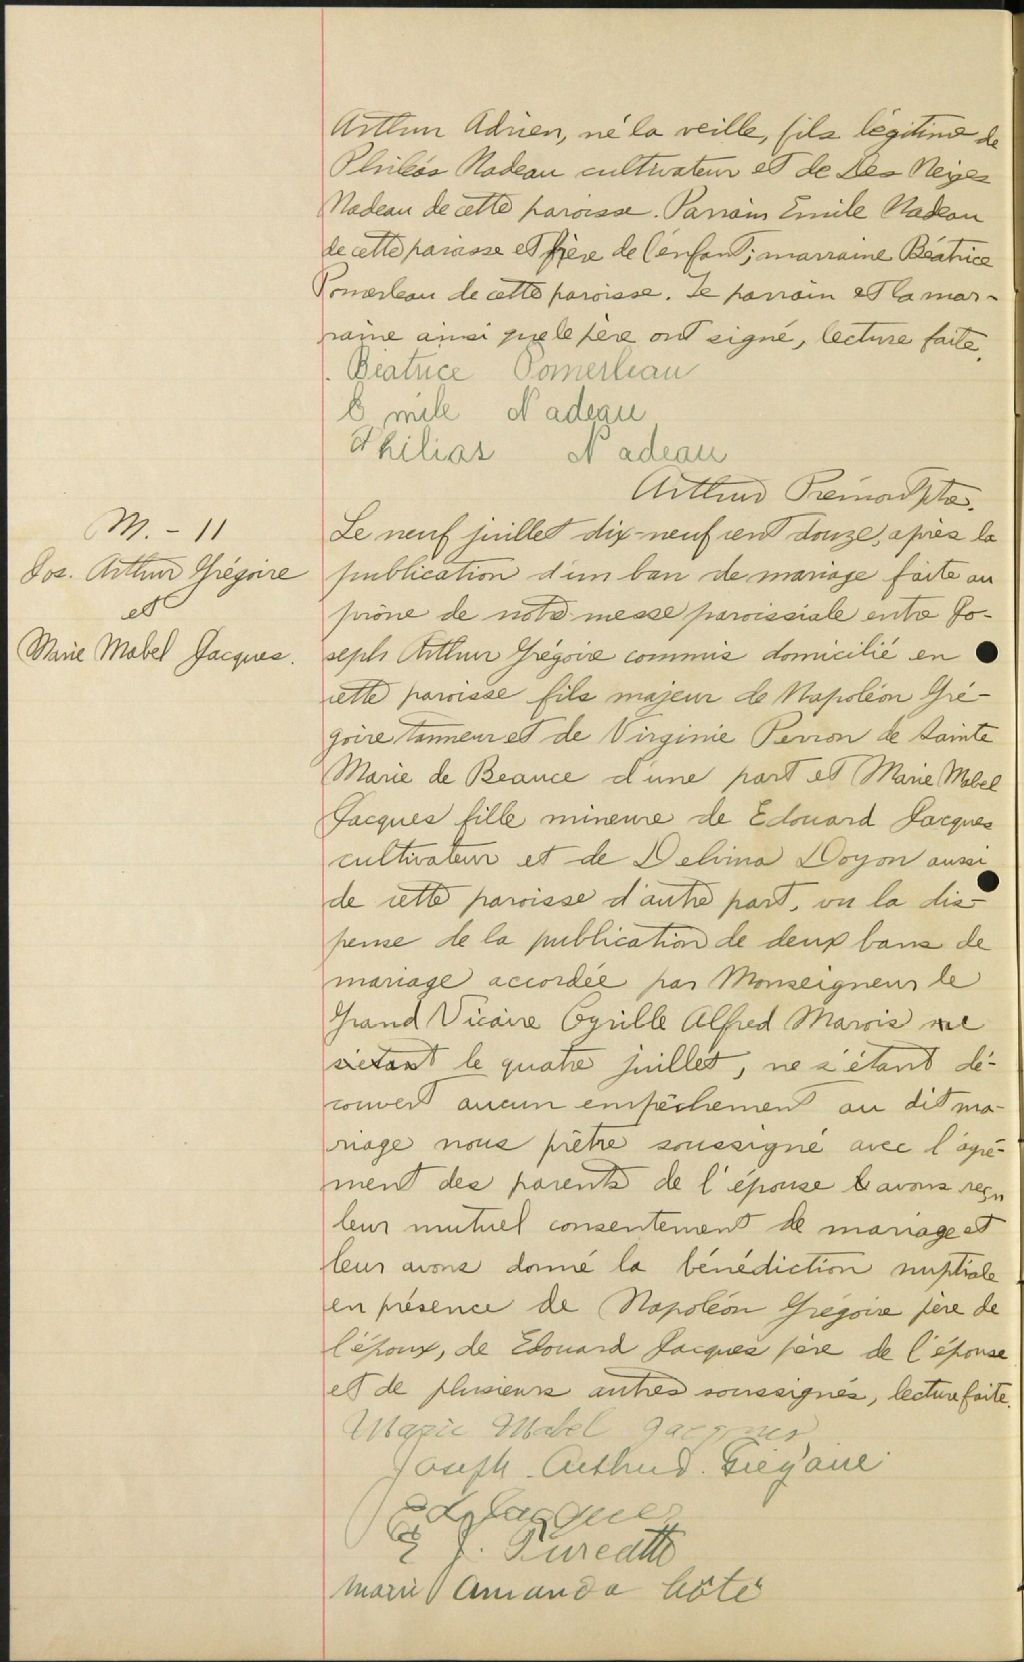 Arthur Adrien, né la veille, fils légitime de
Philéas Nadeau cultivateur et de Des Neiges
Nadeau de cette paroisse. Parrain Emile Nadeau
de cette paroisse et frère de l'enfant; marraine Béatrice
Pomerleau de cette paroisse. Le parrain et la mar-
raine ainsi que le père ont signé, lecture faite.
Béatrice Pomerleau
Emile Nadeau
Philias Nadeau
Arthur Ptre.
M. - 11
Jos. Arthur Grégoire
et
Marie Mabel Jacques.
Le neuf juillet dix-neuf cent douze, après la
publication d'un ban de mariage faite au
prône de notre messe paroissiale entre Jo-
seph Arthur Grégoire commis domicilié en
cette paroisse fils majeur de Napoléon Gré-
goire tanneur et de Virginie Perron de Sainte
Marie de Beauce d'une part et Marie Mabel
Jacques fille mineure de Edouard Jacques
cultivateur et de Delvina Doyon aussi
de cette paroisse d'autre part, vu la dis-
pense de la publication de deux bans de
mariage accordée par Monseigneur le
Grand Vicaire Cyrille Alfred Marois ne
s'étant le quatre juillet, ne s'étant dé-
couvert aucun empêchement au dit ma-
riage nous prêtre soussigné avec l'agré-
ment des parents de l'épouse avons reçu
leur mutuel consentement de mariage et
leur avons donné la bénédiction nuptiale
en présence de Napoléon Grégoire père de
l'époux, de Edouard Jacques père de l'épouse
et de plusieurs autres soussignés, lecture faite.
Marie Mabel Jacques
Joseph Arthur Grégoire
Ed Jacques
J. Turcotte
Marie Amanda Côté